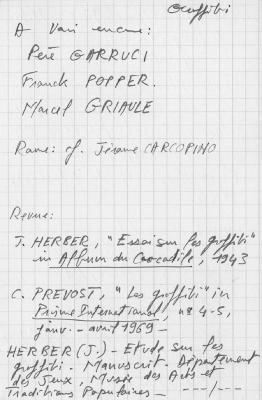 Graffiti
A voir encore :
Père GARRUCI
Franck POPPER.
Marcel GRIAULE
Rome : cf. Jérome CARCOPINO
Revue :
J. HERBER, "Essai sur les graffiti"
in Album du Crocodile, 1943
C. PREVOST, "Les graffiti" in
Prisme International, n° 4-5,
janv. - avril 1969 -
HERBER (J.) - Etude sur les
graffiti. Manuscrit. Département
des Jeux, Musée des Arts et
Traditions Populaires - ---/---